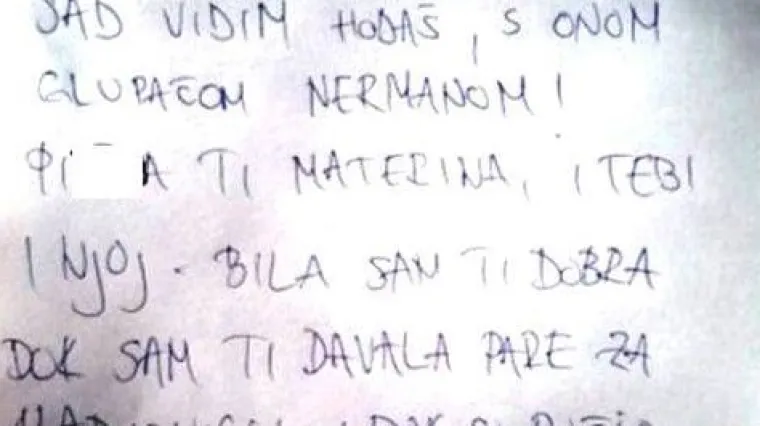 SAD VIDIM HODAŠ, S ONOM
GLUPAČOM NERMANOM!
PI A TI MATERINA, I TEBI
I NJOJ. BILA SAM TI DOBRA
DOK SAM TI DAVALA PARE ZA